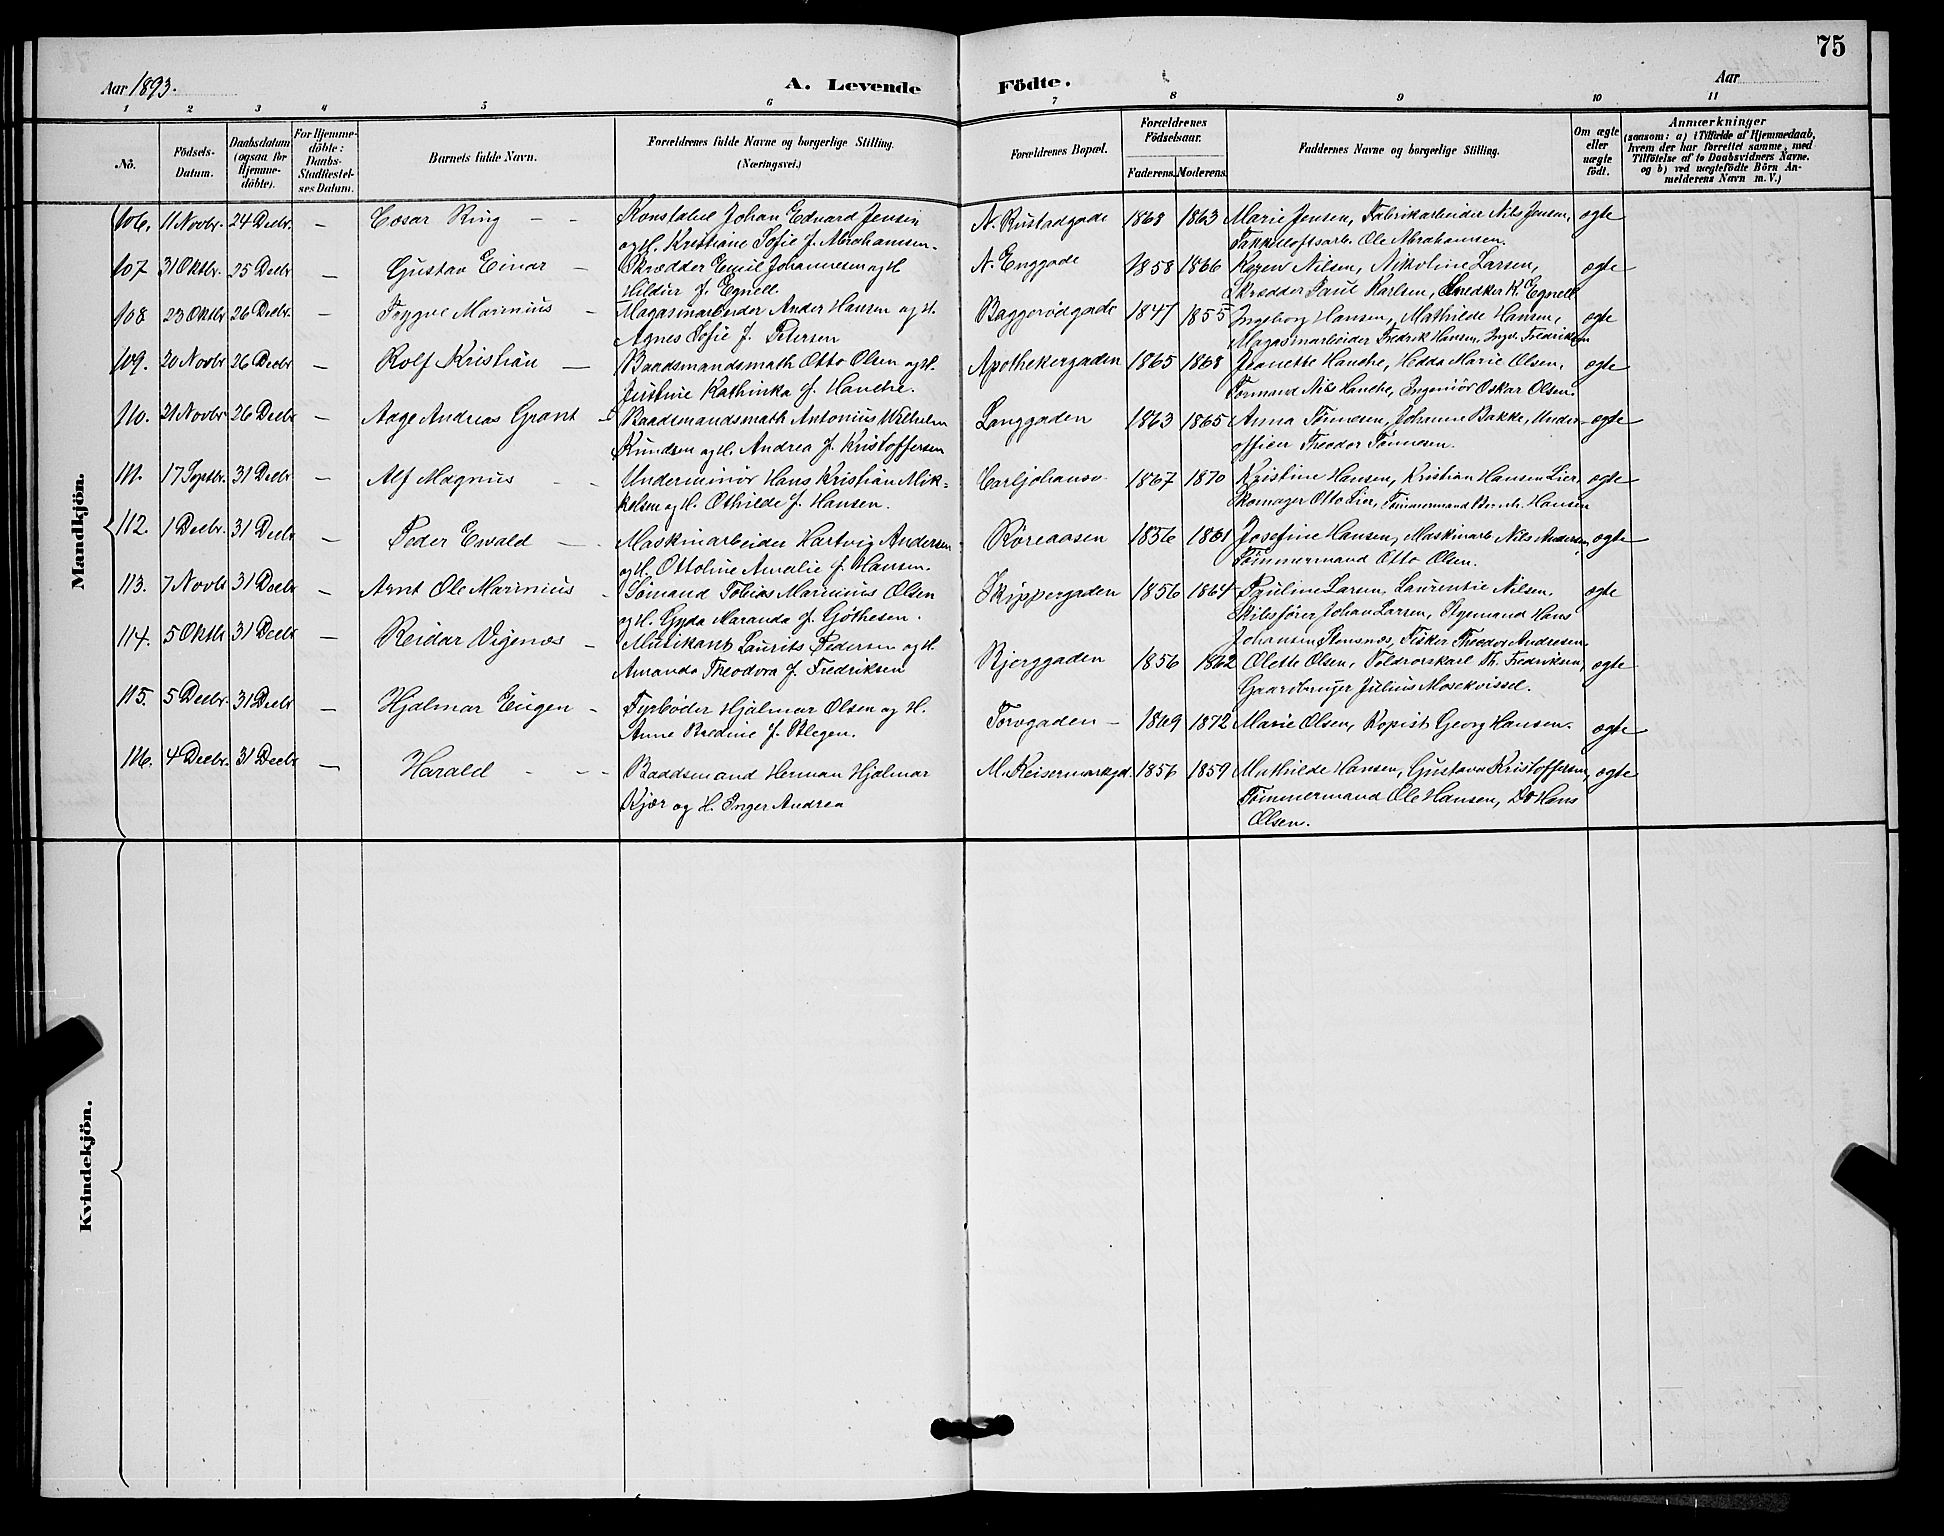 75
Aar 1893. A. Levende Födte. Aar
1 2 3 4 5 6 7 8 9 10 11
No.
Födsels-Datum.
Daabsdatum (ogsaa for Hjemme-döbte).
For Hjemme-döbte: Daabs-Stadfestel-ses Datum.
Barnets fulde Navn.
Forældrenes fulde Navne og borgerlige Stilling. (Næringsvei.)
Forældrenes Bopæl.
Forældrenes Födselsaar.
Faderens. Moderens.
Faddernes Navne og borgerlige Stilling.
Om ægte eller uægte födt.
Anmærkninger
(saasom: a) i Tilfælde af Hjemmedaab,
hvem der har forrettet samme, med
Tilföielse af to Daabsvidners Navne.
og b) ved uægtefödte Börn An-
melderens Navn m. V.)
Mandkjön.
106. 11 Novbr. 24 Decbr. — Cæsar Ring — — Konstabel Johan Edvard Jensen N. Rustadgade 1868 1863 Marie Jensen, Fabrikarbeider Nils Jensen, ægte
og H. Kristiane Sofie f. Abrahamsen. Takkeloftsarb. Ole Abrahamsen.
107. 31 Oktbr. 25 Decbr — Gustav Einar — Skrædder Emil Johannesen og H N. Enggade 1858 1866 Karen Nilsen, Nikoline Larsen, ægte
Hildur f. Egnell. Skrædder Paul Karlsen, Snedker K. Egnell
108 23 Oktbr 26 Decbr. — Trygve Marinius — Magasinarbeider Ander Hansen og H. Baggerödgade 1847 1855 Ingeborg Hansen, Mathilde Hansen, ægte
Agnes Sofie f. Petersen Magasinarbeider Fredrik Hansen, Ingv. Fredriksen
109. 20 Novbr 26 Decbr — Rolf Kristian — Baadsmandsmath Otto Olsen og H. Apothekergaden 1865 1868 Jeanette Hanche, Hedda Marie Olsen, ægte
Justine Kathinka f. Hanche. Formand Nils Hanche, Ingeniör Oskar Olsen.
110. 21 Novbr. 26 Decbr — Aage Andreas Grant — Baadsmandsmath Antonius Wilhelm Langgaden 1863 1865 Anna Tönnesen, Johanne Bakke, Under- ægte
Knudsen og H. Andrea f. Kristoffersen officier Theodor Tönnesen.
111. 17 Septbr. 31 Decbr. — Alf Magnus — — Underminör Hans Kristian Mik- Carljohansv. 1867 1870 Kristine Hansen, Kristian Hansen Lier ægte
kelsen og H. Othilde f. Hansen. Skomager Otto Lier, Tömmermand Bernh. Hansen
112. 1 Decbr. 31 Decbr — Peder Ewald — Maskinarbeider Hartvig Andersen Röreaasen 1856 1861 Josefine Hansen, Maskinarb Nils Andersen, ægte
og H. Ottoline Amalie f. Hansen. Tömmermand Otto Olsen.
113. 7 Novbr 31 Decbr — Arnt Ole Marinius — Sömand Tobias Marinius Olsen Skippergaden 1856 1864 Pauline Larsen, Laurentie Nilsen, ægte
og H. Gyda Maranda f. Göthesen. Skibsförer Johan Larsen, Styrmand Hans
Johansen Stensnæs, Fisker Theodor Andresen.
114. 5 Oktbr 31 Decbr — Reidar Vigenæs — Musikant Laurits Pedersen og H. Bjerggaden 1856 1862 Olette Olsen, Toldrorskarl Th. Fredriksen, ægte
Amanda Theodora f. Fredriksen Gaardbruger Julius Mosekvissel.
115. 5 Decbr. 31 Decbr — Hjalmar Eugen — Fyrböder Hjalmar Olsen og H. Torvgaden — 1869 1872 Marie Olsen, Kopist Georg Hansen. ægte
Anne Bredine f. Blegen.
116. 4 Decbr. 31 Decbr — Harald — — — Baadsmand Herman Hjalmar M. Keisermarkgd. 1856 1859 Mathilde Hansen, Gustava Kristoffersen, ægte
Kjær og H. Inger Andrea Tömmermand Ole Hansen, Do Hans
Olsen.
Kvindekjön.